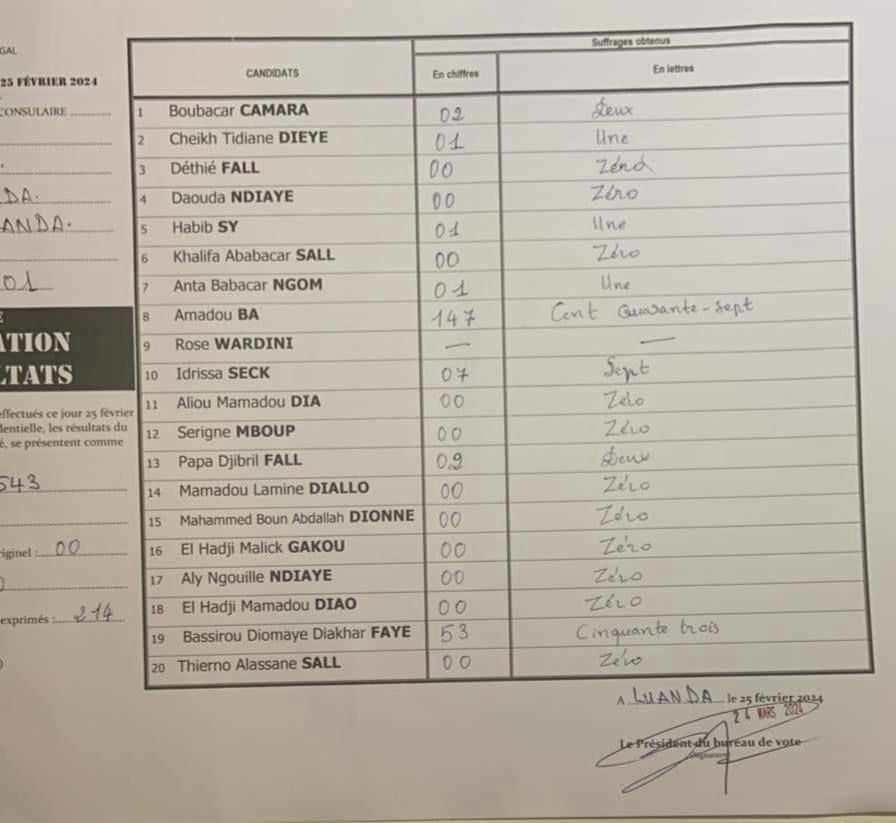 GAL
25 FÉVRIER 2024
CONSULAIRE
DA.
ANDA.
01
E
ATION
LTATS
effectués ce jour 25 février
dentielle, les résultats du
é, se présentent comme
543
riginel : 00
exprimés : 214
CANDIDATS
Suffrages obtenus
En chiffres En lettres
1 Boubacar CAMARA 02 Deux
2 Cheikh Tidiane DIEYE 01 Une
3 Déthié FALL 00 Zéro
4 Daouda NDIAYE 00 Zéro
5 Habib SY 01 Une
6 Khalifa Ababacar SALL 00 Zéro
7 Anta Babacar NGOM 01 Une
8 Amadou BA 147 Cent Quarante-sept
9 Rose WARDINI — —
10 Idrissa SECK 07 Sept
11 Aliou Mamadou DIA 00 Zéro
12 Serigne MBOUP 00 Zéro
13 Papa Djibril FALL 02 Deux
14 Mamadou Lamine DIALLO 00 Zéro
15 Mahammed Boun Abdallah DIONNE 00 Zéro
16 El Hadji Malick GAKOU 00 Zéro
17 Aly Ngouille NDIAYE 00 Zéro
18 El Hadji Mamadou DIAO 00 Zéro
19 Bassirou Diomaye Diakhar FAYE 53 Cinquante trois
20 Thierno Alassane SALL 00 Zéro
A LUANDA le 25 février 2024
24 MARS 2024
Le Président du bureau de vote